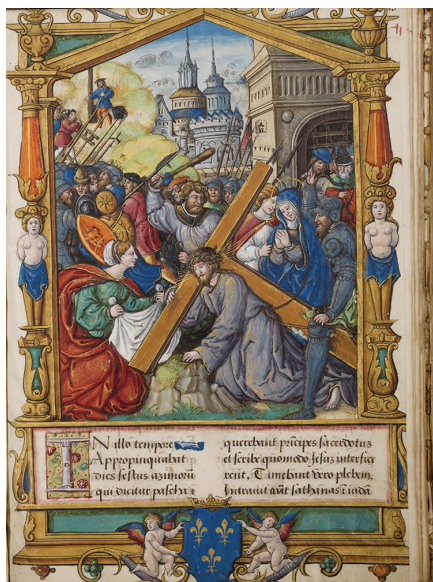 IN illo tempore
Appropinquabat
dies festus azimorū
qui dicitur pascha:
querebant prīcipes sacerdotus
et scribe quomodo Jesus interfice
rent, Timebant vero plebem,
Intravit aūt sathanas ī iudā